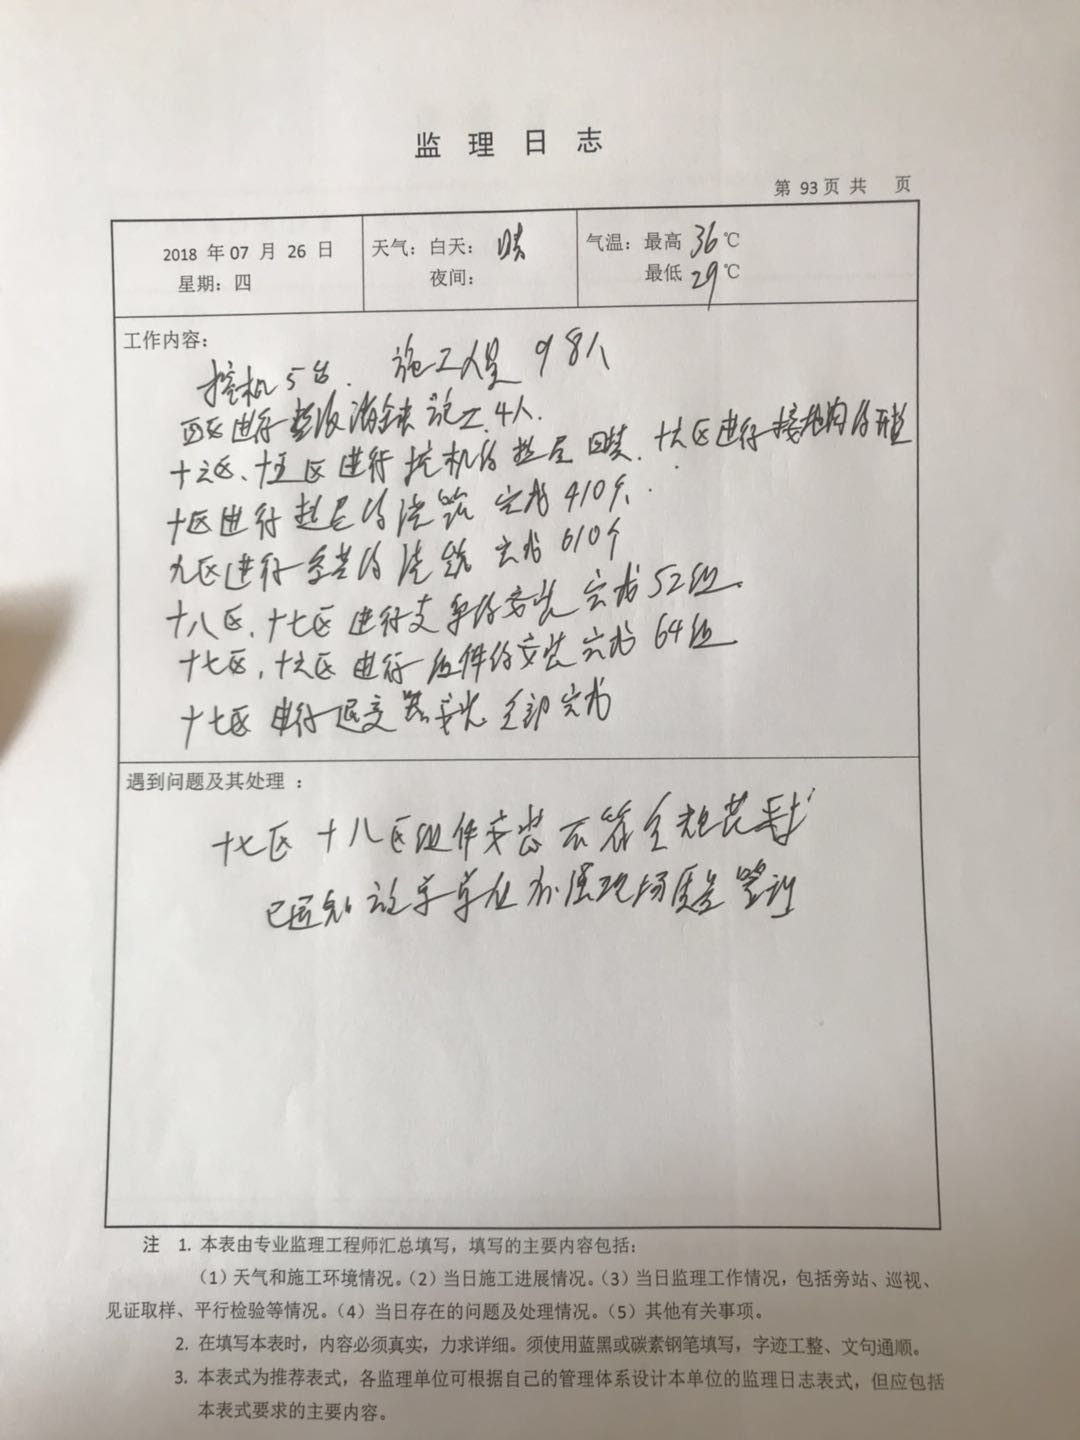 监 理 日 志
第 93 页 共 页
2018 年 07 月 26 日
星期：四
天气：白天： 晴
夜间：
气温：最高 36 ℃
最低 29 ℃
工作内容：
挖机5台. 施工人员 98人
西区进行 施工.4人.
十六区、十五区进行挖机的 十六区进行接地沟的开挖
十区进行 的浇筑 完成410个.
九区进行 的浇筑 完成610个
十八区.十七区进行支架的安装 完成52组.
十七区,十六区进行组件的安装 完成 64组
十七区 进行逆变器安装 全部完成
遇到问题及其处理 ：
十七区 十八区组件安装 不符合规范要求
已通知 现场质量
注 1. 本表由专业监理工程师汇总填写，填写的主要内容包括：
（1）天气和施工环境情况。（2）当日施工进展情况。（3）当日监理工作情况，包括旁站、巡视、
见证取样、平行检验等情况。（4）当日存在的问题及处理情况。（5）其他有关事项。
2. 在填写本表时，内容必须真实，力求详细。须使用蓝黑或碳素钢笔填写，字迹工整、文句通顺。
3. 本表式为推荐表式，各监理单位可根据自己的管理体系设计本单位的监理日志表式，但应包括
本表式要求的主要内容。